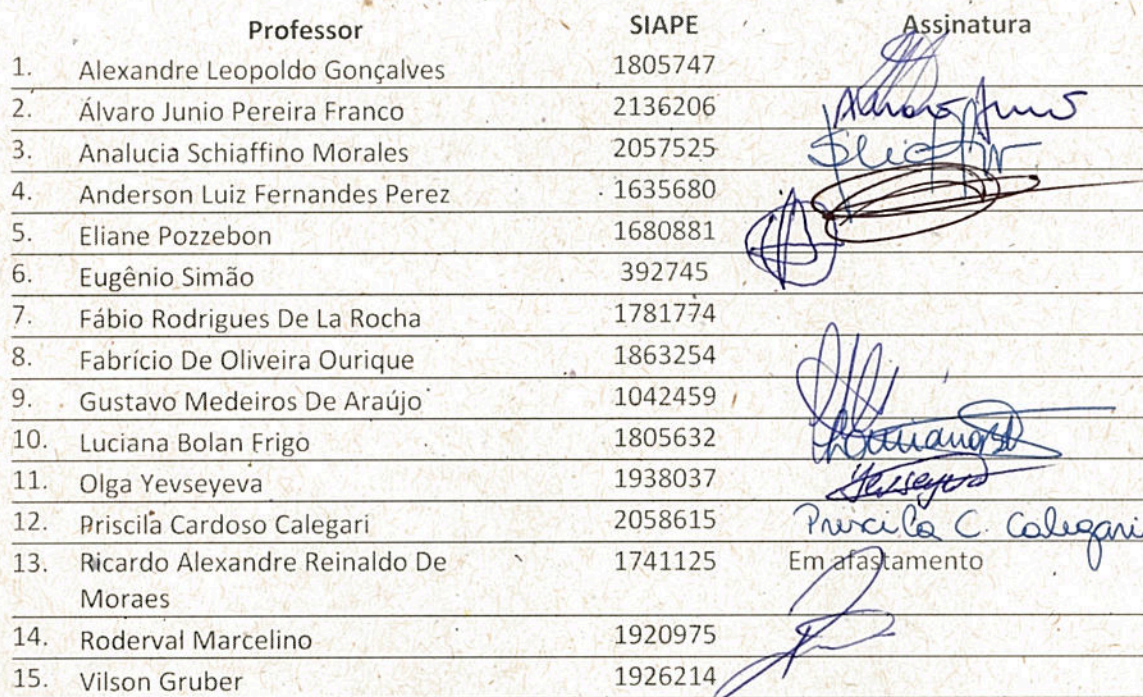 Professor SIAPE Assinatura
1. Alexandre Leopoldo Gonçalves 1805747
2. Álvaro Junio Pereira Franco 2136206
3. Analucia Schiaffino Morales 2057525
4. Anderson Luiz Fernandes Perez 1635680
5. Eliane Pozzebon 1680881
6. Eugênio Simão 392745
7. Fábio Rodrigues De La Rocha 1781774
8. Fabrício De Oliveira Ourique 1863254
9. Gustavo Medeiros De Araújo 1042459
10. Luciana Bolan Frigo 1805632
11. Olga Yevseyeva 1938037
12. Priscila Cardoso Calegari 2058615 Priscila C. Calegari
13. Ricardo Alexandre Reinaldo De 1741125 Em afastamento
Moraes
14. Roderval Marcelino 1920975
15. Vilson Gruber 1926214